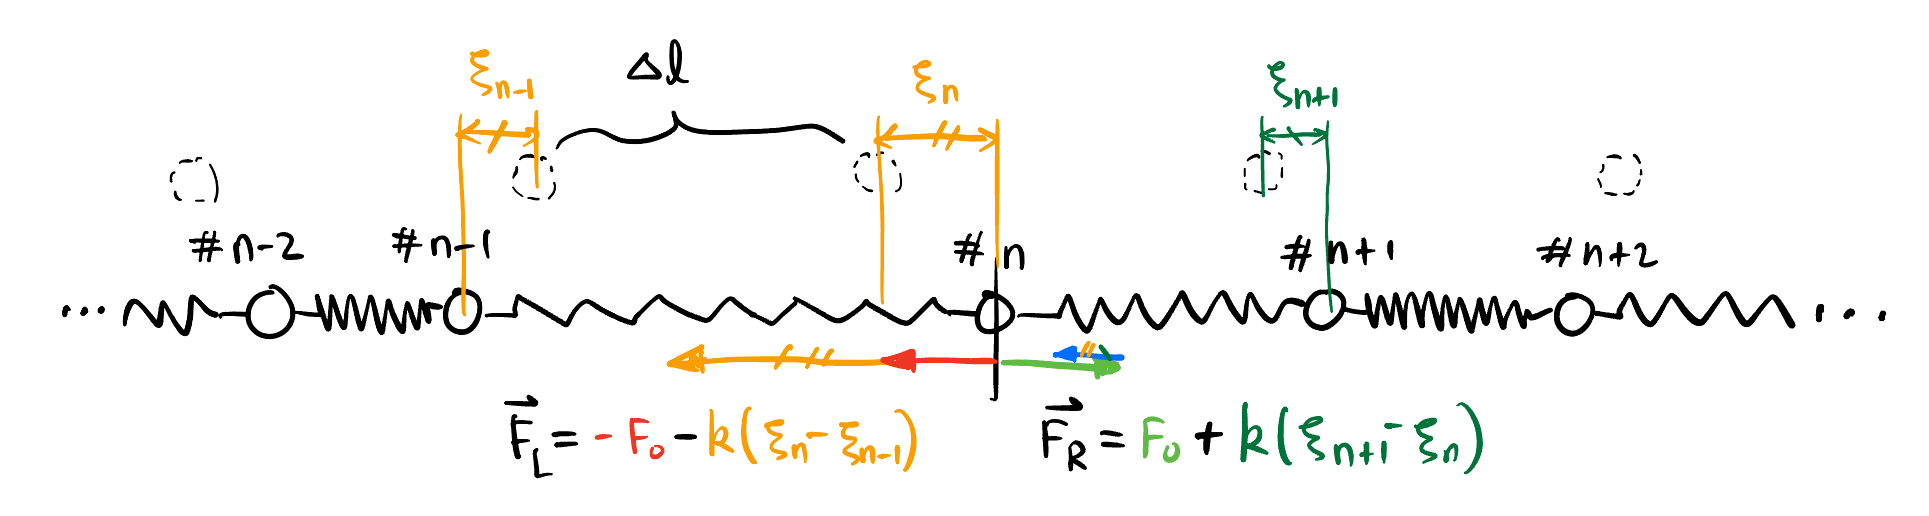 ξₙ₋₁ Δl ξₙ ξₙ₊₁
#n-2 #n-1 #n #n+1 #n+2
... ...
F⃗_L = -F₀ - k(ξₙ - ξₙ₋₁) F⃗_R = F₀ + k(ξₙ₊₁ - ξₙ)